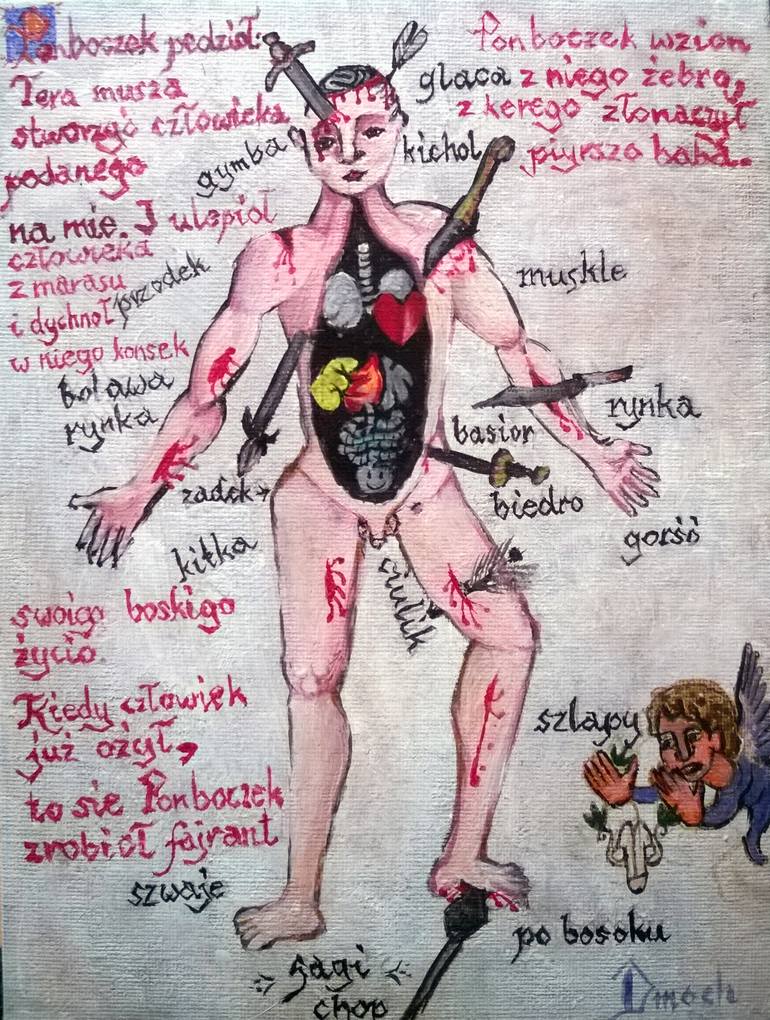 Ponboczek pedzioł:
Tera musza
stworzyć człowieka
podanego
na mie. I ulepioł
człowieka
z marasu
i dychnoł
w niego konsek
swoigo boskigo
życio.
Kiedy człowiek
już ożył,
to sie Ponboczek
zrobiół fajrant
Ponboczek wzion
z niego żebro,
z kerego złonaczył
piyrszo baba.
glaca
gymba
kichol
muskle
przodek
bolawa
rynka
rynka
basior
biedro
zadek→
gorść
kitka
ciulik
szlapy
szwaje
po bosoku
sagi
chop